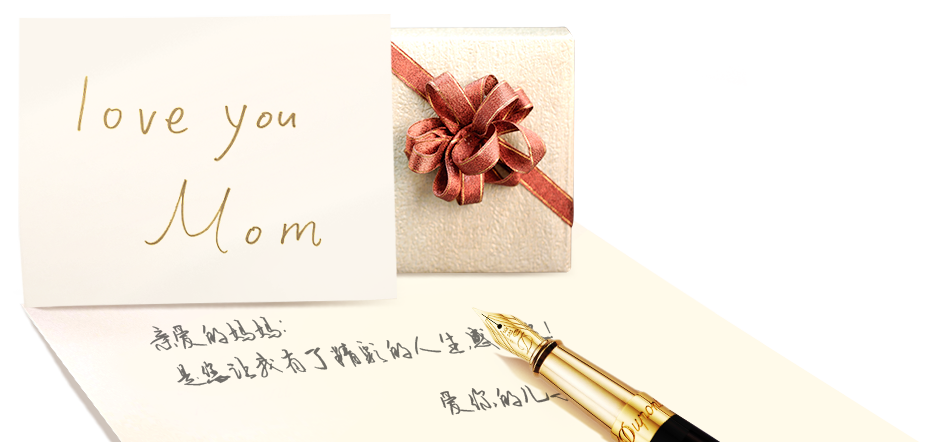 love you
Mom
亲爱的妈妈:
是您让我有了精彩的人生 !
爱你的儿
Dupont